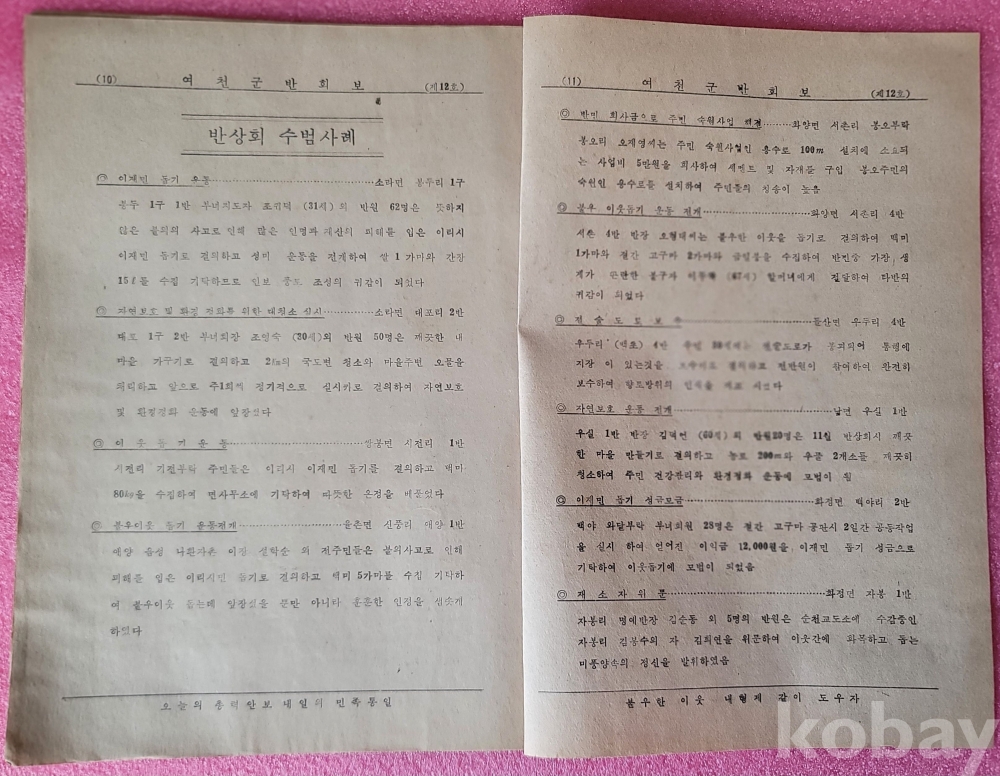 (10) 여천군반회보 (제12호)
반상회 수범사례
◎ 이재민 돕기 운동 ⋯⋯ 소라면 봉두리 1구
봉두 1구 1반 부녀지도자 조 (31세)외 반원 62명은 뜻하지
않은 불의의 사고로 인해 많은 인명과 재산의 피해를 입은 이리시
이재민 돕기로 결의하고 성미 운동을 전개하여 쌀 1가마와 간장
15ℓ를 수집 기탁하므로 인보 풍토 조성의 귀감이 되었다
◎ 자연보호 및 환경 정화를 위한 대청소 실시 ⋯⋯ 소라면 대포리 2반
대포 1구 2반 부녀회장 조영숙 (30세)외 반원 50명은 깨끗한 내
마을 가꾸기로 결의하고 2㎞의 국도변 청소와 마을주변 오물을
의 하고 앞으로 주1회씩 정기적으로 실시키로 결의하여 자연보호
및 환경정화 운동에 앞장섰다
◎ 이웃돕기운동 ⋯⋯ 쌍봉면 시전리 1반
시전리 기전부락 주민들은 이리시 이재민 돕기를 결의하고 백미
80㎏을 수집하여 면사무소에 기탁하여 따뜻한 온정을 베풀었다
◎ 불우이웃 돕기 운동전개 ⋯⋯ 율촌면 신풍리 애양 1반
애양 음성 나환자촌 이장 외 전주민들은 불의사고로 인해
피해를 입은 이리시민 돕기로 결의하고 백미 5가마를 수집 기탁하
여 불우이웃 돕는데 앞장섰을 뿐만 아니라 훈훈한 인정을 샘솟게
하였다
오늘의 총력안보 내일의 민족통일
(11) 여천군반회보 (제12호)
◎ 반비 희사금으로 주민 숙원사업 해결 ⋯⋯ 화양면 서촌리 봉오부락
봉오리 오재영씨는 주민 숙원사업인 용수로 100m 설치에 소요되
는 사업비 5만원을 희사하여 세멘트 및 자재를 구입 봉오주민의
숙원인 용수로를 설치하여 주민들의 칭송이 높음
◎ 불우 이웃돕기 운동 전개 ⋯⋯ 화양면 서촌리 4반
서촌 4반 반장 오형대씨는 불우한 이웃을 돕기로 결의하여 백미
1가마와 절간 고구마 2가마와 금일봉을 수집하여 반민중 가장 생
계가 곤란한 불구자 (67세) 할머니에게 전달하여 타반의
귀감이 되었다
◎ 전술도로보수 ⋯⋯ 돌산면 우두리 4반
우두리 (백초) 4반 주민 전술도로가 붕괴되어 통행에
지장이 있는것을 전반원이 참여하여 완전히
보수하여 향토방위의
◎ 자연보호 운동 전개 ⋯⋯ 남면 우실 1반
우실 1반 반장 김덕 (60세)외 반원20명은 11월 반상회시 깨끗
한 마을 만들기로 결의하고 농로 200m와 우물 2개소를 깨끗히
청소하여 주민 건강관리와 환경정화 운동에 모범이 됨
◎ 이재민 돕기 성금모금 ⋯⋯ 화정면 백야리 2반
백야 와달부락 부녀회원 28명은 절간 고구마 공판시 2일간 공동작업
을 실시 하여 얻어진 이익금 12,000원을 이재민 돕기 성금으로
기탁하여 이웃돕기에 모범이 되었음
◎ 재소자위문 ⋯⋯ 화정면 자봉 1반
자봉리 명예반장 김순동 외 5명의 반원은 순천교도소에 수감중인
자봉리 김봉수의 자 김희연을 위문하여 이웃간에 화목하고 돕는
미풍양속의 정신을 발휘하였음
불우한 이웃 내형제 같이 도우자
kobay